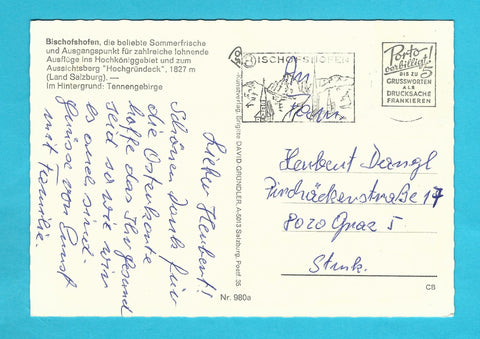 Bischofshofen, die beliebte Sommerfrische
und Ausgangspunkt für zahlreiche lohnende
Ausflüge ins Hochkönigggebiet und zum
Aussichtsberg "Hochgründeck", 1827 m
(Land Salzburg). —
Im Hintergrund: Tennengebirge
Lieber Heubert!
Schönen Dank für
die Osterkarte
hoffe das Ihr gesund
seid so wie wir
es auch sind
Grüsse von Ernst
mit Familie.
DAVID GRÜNDLER, A-5013 Salzburg, Postf. 35
Nr. 980a
BISCHOFSHOFEN
Porto
verbilligt!
BIS ZU
5
GRUSSWORTEN
ALS
DRUCKSACHE
FRANKIEREN
An
Herrn
Heubert Dangl
8020 Graz 5
Stmk.
CB